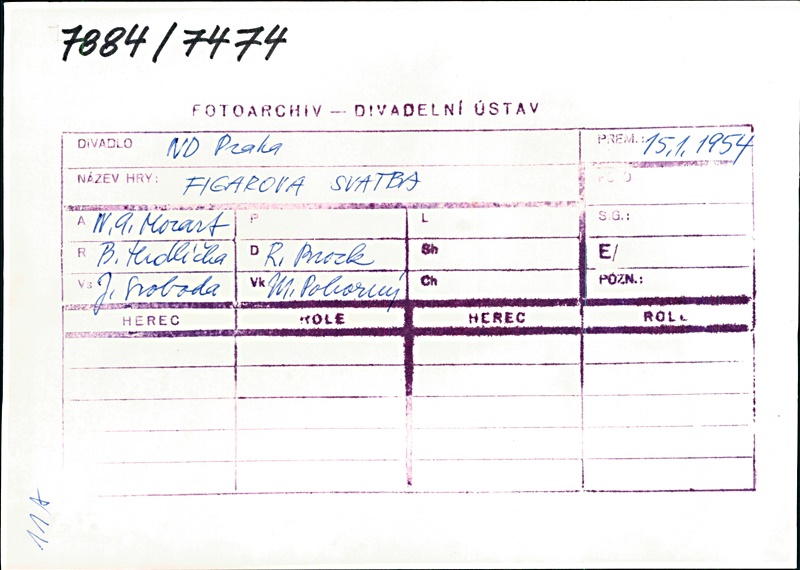 7884/7474
FOTOARCHIV — DIVADELNÍ ÚSTAV
DIVADLO ND Praha PREM.: 15.1.1954
NÁZEV HRY: FIGAROVA SVATBA FOTO
A W.A. Mozart P L S.G.:
R B. Hrdlička D R. Brock Sh E/
Vs J. Svoboda Vk M. Pokorný Ch POZN.:
HEREC ROLE HEREC ROLE